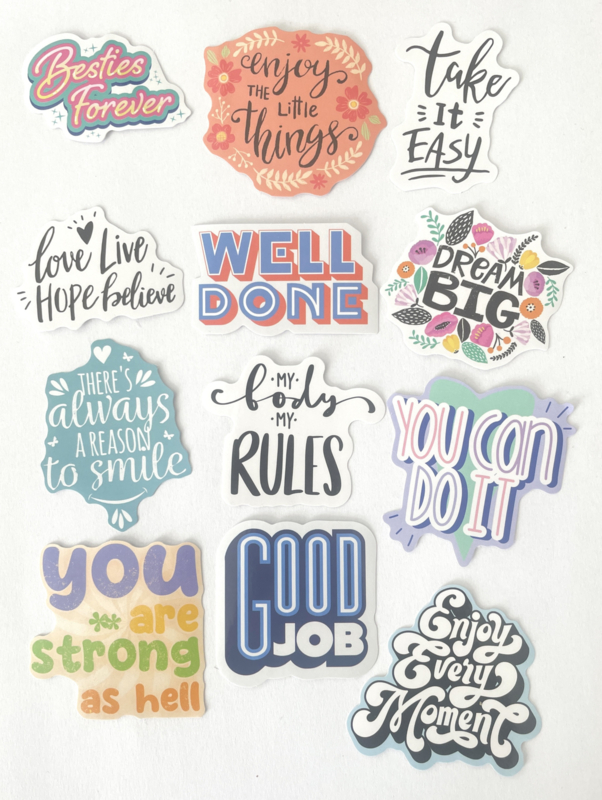 Besties
Forever
enjoy
THE LiTTLe
things
take
It
EASY
love Live
HOPE believe
WELL
DONE
DREAM
BIG
THERE'S
always
A REASON
to smile
·MY·
body
·MY·
RULES
YOU Can
DO IT
you
are
strong
as hell
GOOD
JOB
Enjoy
Every
Moment